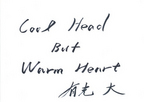 Cool Head
But
Warm Heart
大